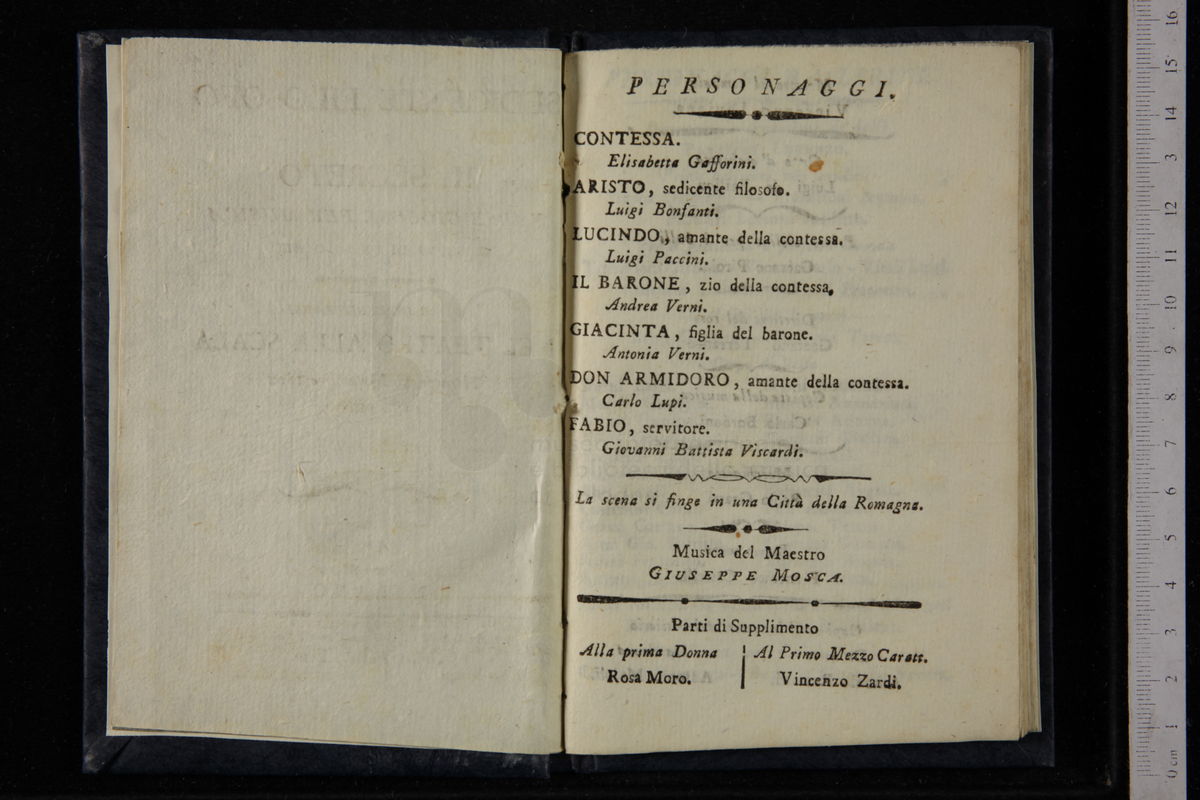 PERSONAGGI.
CONTESSA.
Elisabetta Gafforini.
ARISTO, sedicente filosofo.
Luigi Bonfanti.
LUCINDO, amante della contessa.
Luigi Paccini.
IL BARONE, zio della contessa.
Andrea Verni.
GIACINTA, figlia del barone.
Antonia Verni.
DON ARMIDORO, amante della contessa.
Carlo Lupi.
FABIO, servitore.
Giovanni Battista Viscardi.
La scena si finge in una Città della Romagna.
Musica del Maestro
GIUSEPPE MOSCA.
Parti di Supplimento
Alla prima Donna
Rosa Moro.
Al Primo Mezzo Caratt.
Vincenzo Zardi.
0 cm 1 2 3 4 5 6 7 8 9 10 11 12 13 14 15 16